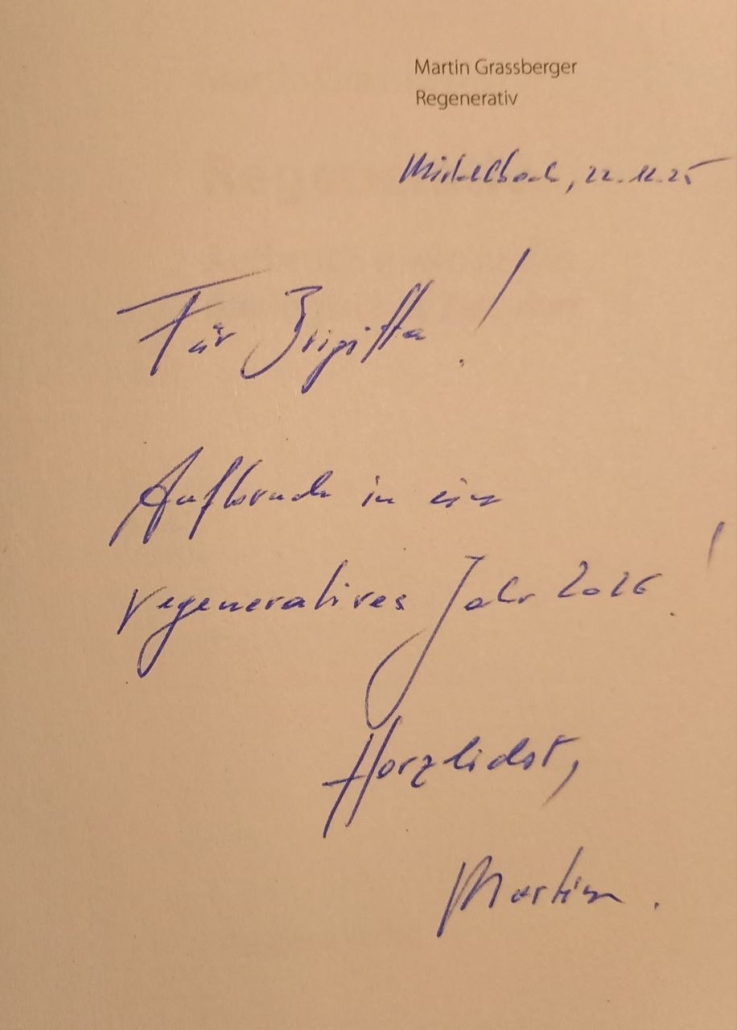 Martin Grassberger
Regenerativ
Michelbach, 22.12.25
Für Brigitta!
Aufbruch in ein
regeneratives Jahr 2026!
Herzlichst,
Martin.